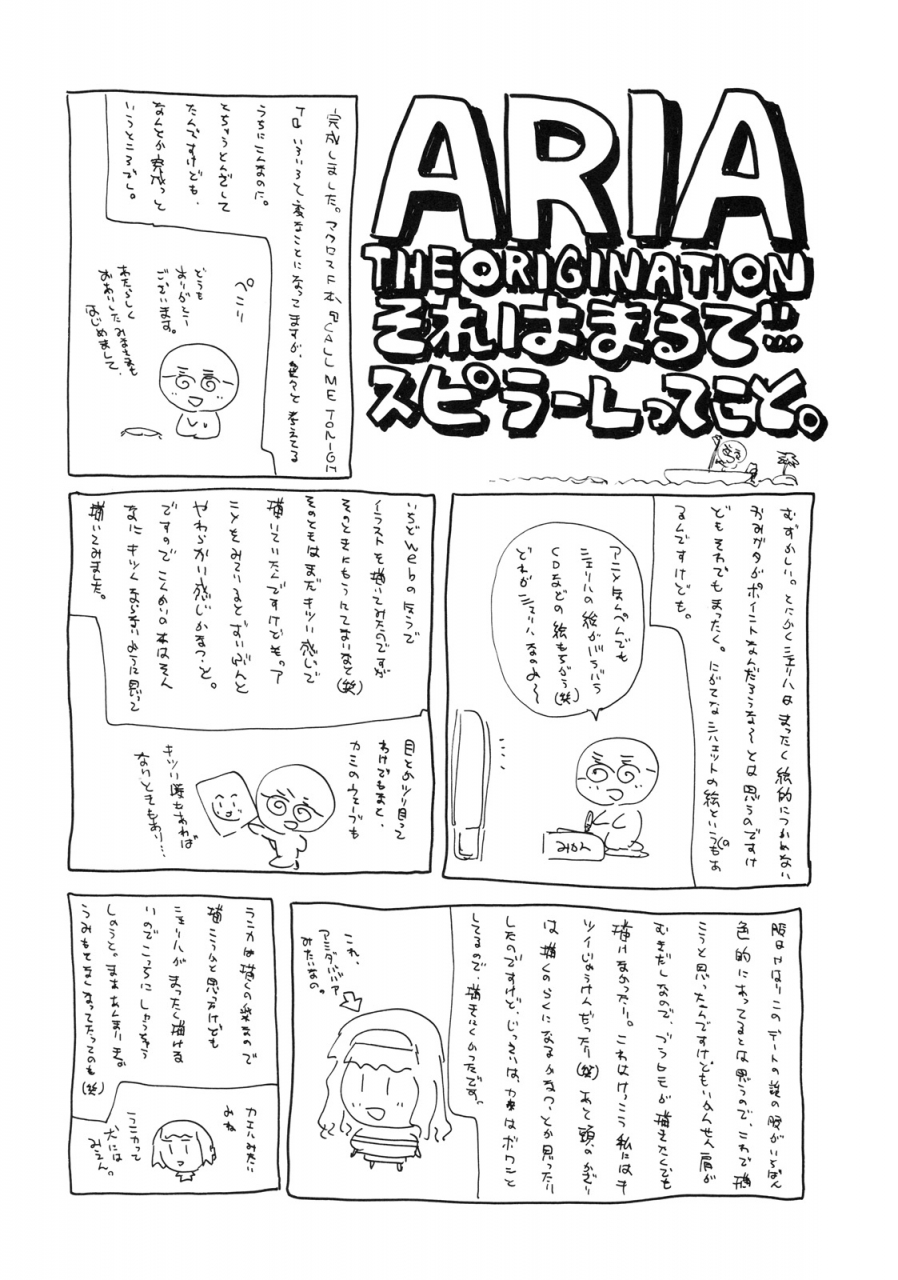 ARIA
THE ORIGINATION
それはまるで…
スピラーレってこと。
完成しました。マクロスF本『CALL ME TONIGH
T』いろいろと変なことになってますが、色々と考えてる
うちにこんなのに。
とちゅうとんざして
たんですけども、
なんとか完成っと
いうところでし。
ペこり
どうも
ありがとー
ございます。
あたらしく
おあいしたみなさまも
はじめまして、
むずかしい。とにかくシェリルはまったく絵的につかめない
かみがタがポイントなんだろうな〜とは思うのですけ
どもそれでもまったく。にがてなシルエットの絵というのもあ
るんですけども。
アニメ本ぺんでも
シェリルの絵がバラバラ
CDなどの絵もちがう(笑)
どれがシェリルなのよ〜
みかん
いちどwebの方で
イラストを描いてみたのですが
そのときにもうにてないなと(笑)
そのときはまだキツい感じで
描いていたんですけどもっア
ことをみているとずいぶんと
やわらかい感じかなっ、と。
ですのでこんかいの本はそん
なにキツくならないように思って
描いてみました。
目とかツリ目って
わけでもまと、
カミのウェーブも
キツい時もあれば
なりときもあり…
服はやはりこのデートの時の服がいちばん
色的にあってるとは思うので、これで描
こうと思ったんですけどもいかんせん肩が
むきだしなので、ブラヒモが描きたくても
描けなかったり。これはけっこう私にはキ
ツイじょうけんだったり(笑)あと頭のかざり
は描くのらくになるかなっ、とか思ったり
したのですけど、じっさいは、カチはボワンと
してるので、描きにくかったです。
これ、
アミダババア
みたいなの。
ランカは描くの楽なので
描こうかと思ったけども
シェリルがまったく描ける
いのでこっちにしゅうちゅう
しようと。まああんまりまな
うみもとまこなってたってのも(笑)
カエルみたい
みね
ランカって
犬には
みえん。